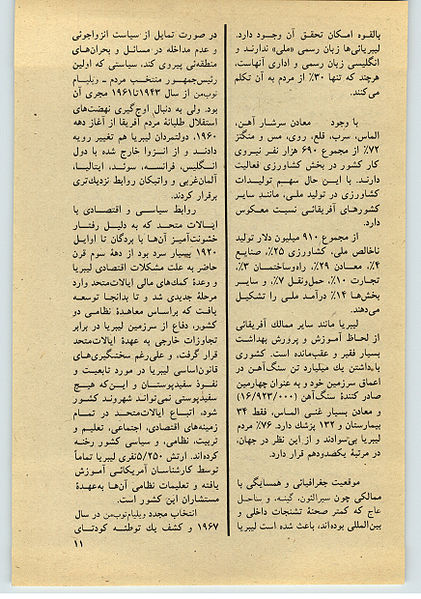 بالقوه امکان تحقق آن وجود دارد.
لیبریائی‌ها زبان رسمی «ملی» ندارند و
انگلیسی زبان رسمی و اداری آنهاست،
هرچند که تنها ۳۰٪ از مردم به آن تکلم
می‌کنند.
با وجود معادن سرشار آهن،
الماس، سرب، قلع، روی، مس و منگنز
۷۲٪ از مجموع ۶۹۰ هزار نفر نیروی
کار کشور در بخش کشاورزی فعالیت
دارند. با این حال سهم تولیدات
کشاورزی در تولید ملی، مانند سایر
کشورهای آفریقائی نسبت معکوس
دارد.
از مجموع ۹۱۰ میلیون دلار تولید
ناخالص ملی، کشاورزی ۲۵٪، صنایع
۴٪، معادن ۲۹٪، راه‌وساختمان ۳٪،
تجارت ۱۰٪، حمل‌ونقل ۷٪، و سایر
بخش‌ها ۱۴٪ درآمد ملی را تشکیل
می‌دهند.
لیبریا مانند سایر ممالك آفریقائی
از لحاظ آموزش و پرورش بهداشت
بسیار فقیر و عقب‌مانده است. کشوری
باداشتن یك میلیارد تن سنگ‌آهن در
اعماق سرزمین خود و به عنوان چهارمین
صادر کنندهٔ سنگ‌آهن (۱۶/۹۲۳/۰۰۰)
و معادن بسیار غنی الماس، فقط ۳۴
بیمارستان و ۱۳۲ پزشك دارد. ۷۶٪ مردم
لیبریا بی‌سوادند و از این نظر در جهان،
در مرتبهٔ یکصدودهم قرار دارد.
موقعیت جغرافیائی و همسایگی با
ممالکی چون سیرالئون، گینه، و ساحل
عاج که کمتر صحنهٔ تشنجات داخلی و
بین‌المللی بوده‌اند، باعث شده است لیبریا
در صورت تمایل از سیاست انزواجوئی
و عدم مداخله در مسائل و بحران‌های
منطقه‌ئی پیروی کند، سیاستی که اولین
رئیس‌جمهور منتخب مردم ـ ویلیام
توب‌من از سال ۱۹۴۳تا۱۹۶۱ مجری آن
بود. ولی به دنبال اوج‌گیری نهضت‌های
استقلال طلبانهٔ مردم آفریقا از آغاز دهه
۱۹۶۰، دولتمردان لیبریا هم تغییر رویه
دادند و از انزوا خارج شده با دول
انگلیس، فرانسه، سوئد، ایتالیا،
آلمان‌غربی و واتیکان روابط نزدیك‌تری
برقرار کردند.
روابط سیاسی و اقتصادی با
ایالات متحد که به دلیل رفتار
خشونت‌آمیز آن‌ها با بردگان تا اوایل
۱۹۲۰ بیسیار سرد بود از دههٔ سوم قرن
حاضر به علت مشکلات اقتصادی لیبریا
و وعدهٔ کمك‌های مالی ایالات‌متحد وارد
مرحلهٔ جدیدی شد و تا بدانجا توسعه
یافت که براساس معاهدهٔ نظامی دو
کشور، دفاع از سرزمین لیبریا در برابر
تجاوزات خارجی به عهدهٔ ایالات‌متحد
قرار گرفت، و علی‌رغم سختگیری‌های
قانون‌اساسی لیبریا در مورد تابعیت و
نفوذ سفیدپوستان و این‌که هیچ
سفیدپوستی نمی‌تواند شهروند کشور
شود، اتباع ایالات‌متحد در تمام
زمینه‌های اقتصادی، اجتماعی، تعلیم و
تربیت، نظامی، و سیاسی کشور رخنه
کرده‌اند. ارتش ۵/۲۵۰نفری لیبریا تماماً
توسط کارشناسان آمریکائی آموزش
یافته و تعلیمات نظامی آن‌ها به‌عهدهٔ
مستشاران این کشور است.
انتخاب مجدد ویلیام‌توب‌من در سال
۱۹۶۷ و کشف یك توطئه کودتای
۱۱